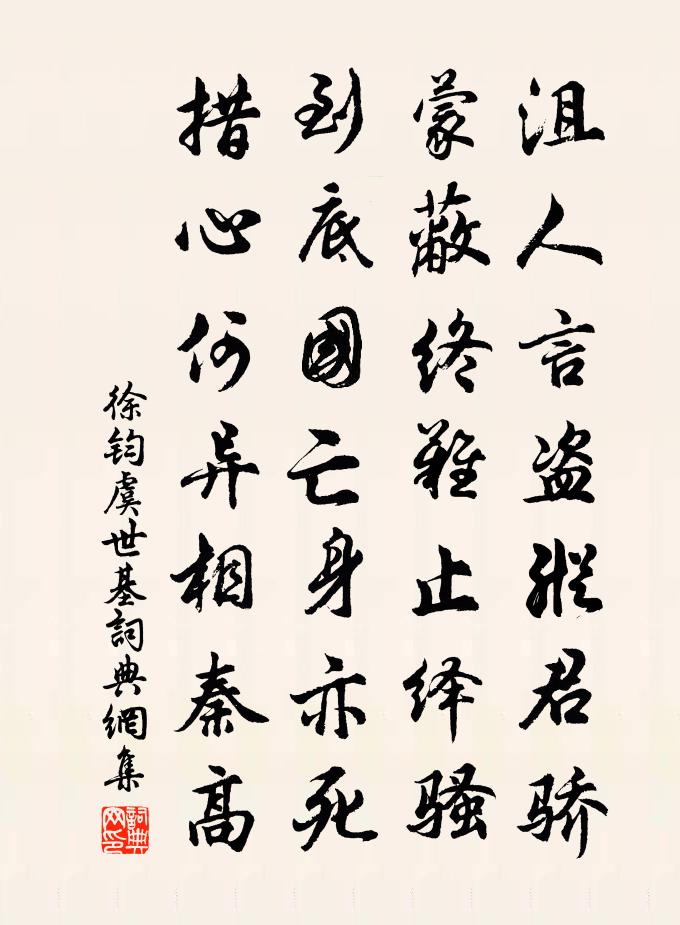 沮人言盗縱君骄
蒙蔽终難止绎骚
到底國亡身亦死
措心何异相秦高
徐钧虞世基詞典網集
詞典网印